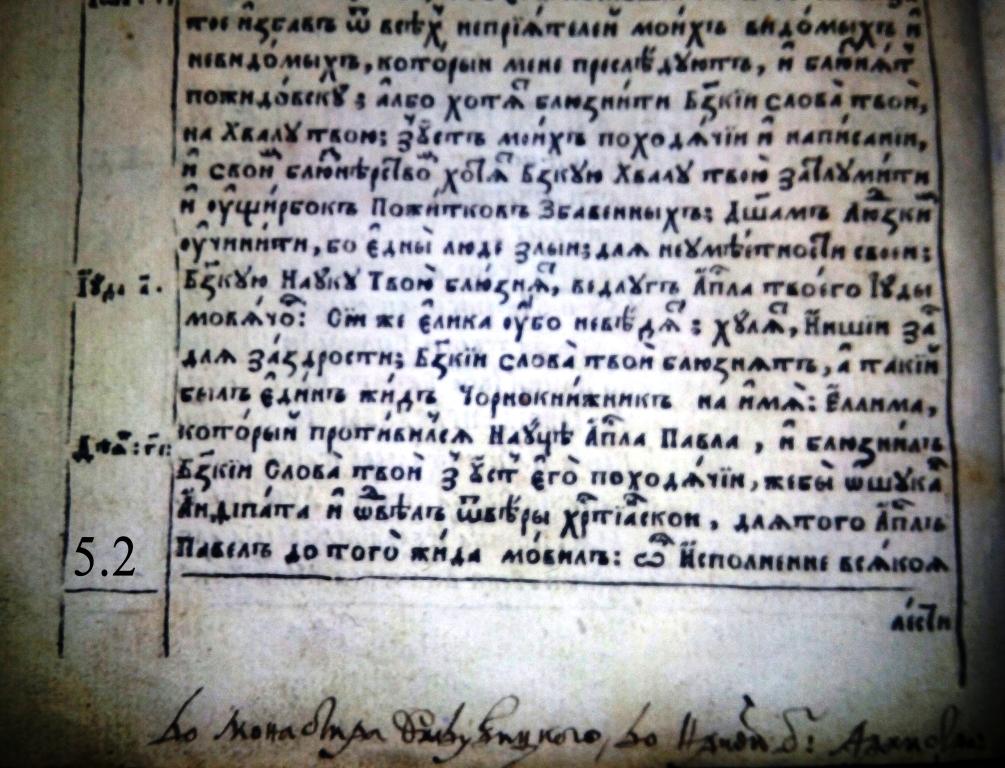 тое и҆збавъ ѿ всѣхъ непрїѧ́телей мои́хъ видо́мыхъ и҆
невидо́мыхъ, которыи мене преслѣ́дуютъ, и҆ блю́знѧтъ
пожидо́вску; а҆лбо хотѧ̑ блюзни́ти Бз҃кїи слова̀ твои̑,
на Хвалу̀ твою; з̾ ѹ҆стъ мои́хъ походѧ́чїи и҆ напи́санїи,
и҆ свои̑ блюзнѣрство̑ хотѧ̑ Бз҃кую Хвалу̀ твою̀ затлуми́ти
и҆ ѹ҆щи́рбокъ Пожи́тковъ Збавенныхъ; Дш҃амъ Лю́дзки
ѹ҆чини́ти, бо є҆дны̀ люде злыи; для неумѣ́етности своеи;
І҆ѹ́ди: г҃і.
Бз҃кую Наѹ́ку Твою̀ блю́знѧ, ведлугъ А҆п҃ла твоего І҆ѹ́ды
мовѧ́чо: Сїи же є҆ли́ка ѹ҆́бо невѣ́дѧ: ху́лѧ, И҆́ншїи за̑
для за́здрости; Бз҃кїи слова̀ твои̑ блюзнѧтъ, а҆ такїи̑
былъ є҆ди́нъ жи́дъ Чорнокни́жникъ на и҆́мѧ: Є҆ллима,
кото́рый проти́вилсѧ Наѹ́цѣ А҆п҃ла Павла, и҆ блюзни́лъ
Бз҃кїи Слова̀ твои̑ з̾ ѹ҆стъ є҆го̀ походѧ́чїи, жебы̀ ѡ҆шука̑
А҆нді́пата и҆ ѿвѣ́лъ ѿвѣ́ры хрⷭ҇тїа́нскои, длятого А҆п҃лъ
5.2
Павелъ до того̀ жи́да мо́вилъ: Ѽ И҆сполнение всѧ́коѧ
ле́сти
до монастира, до